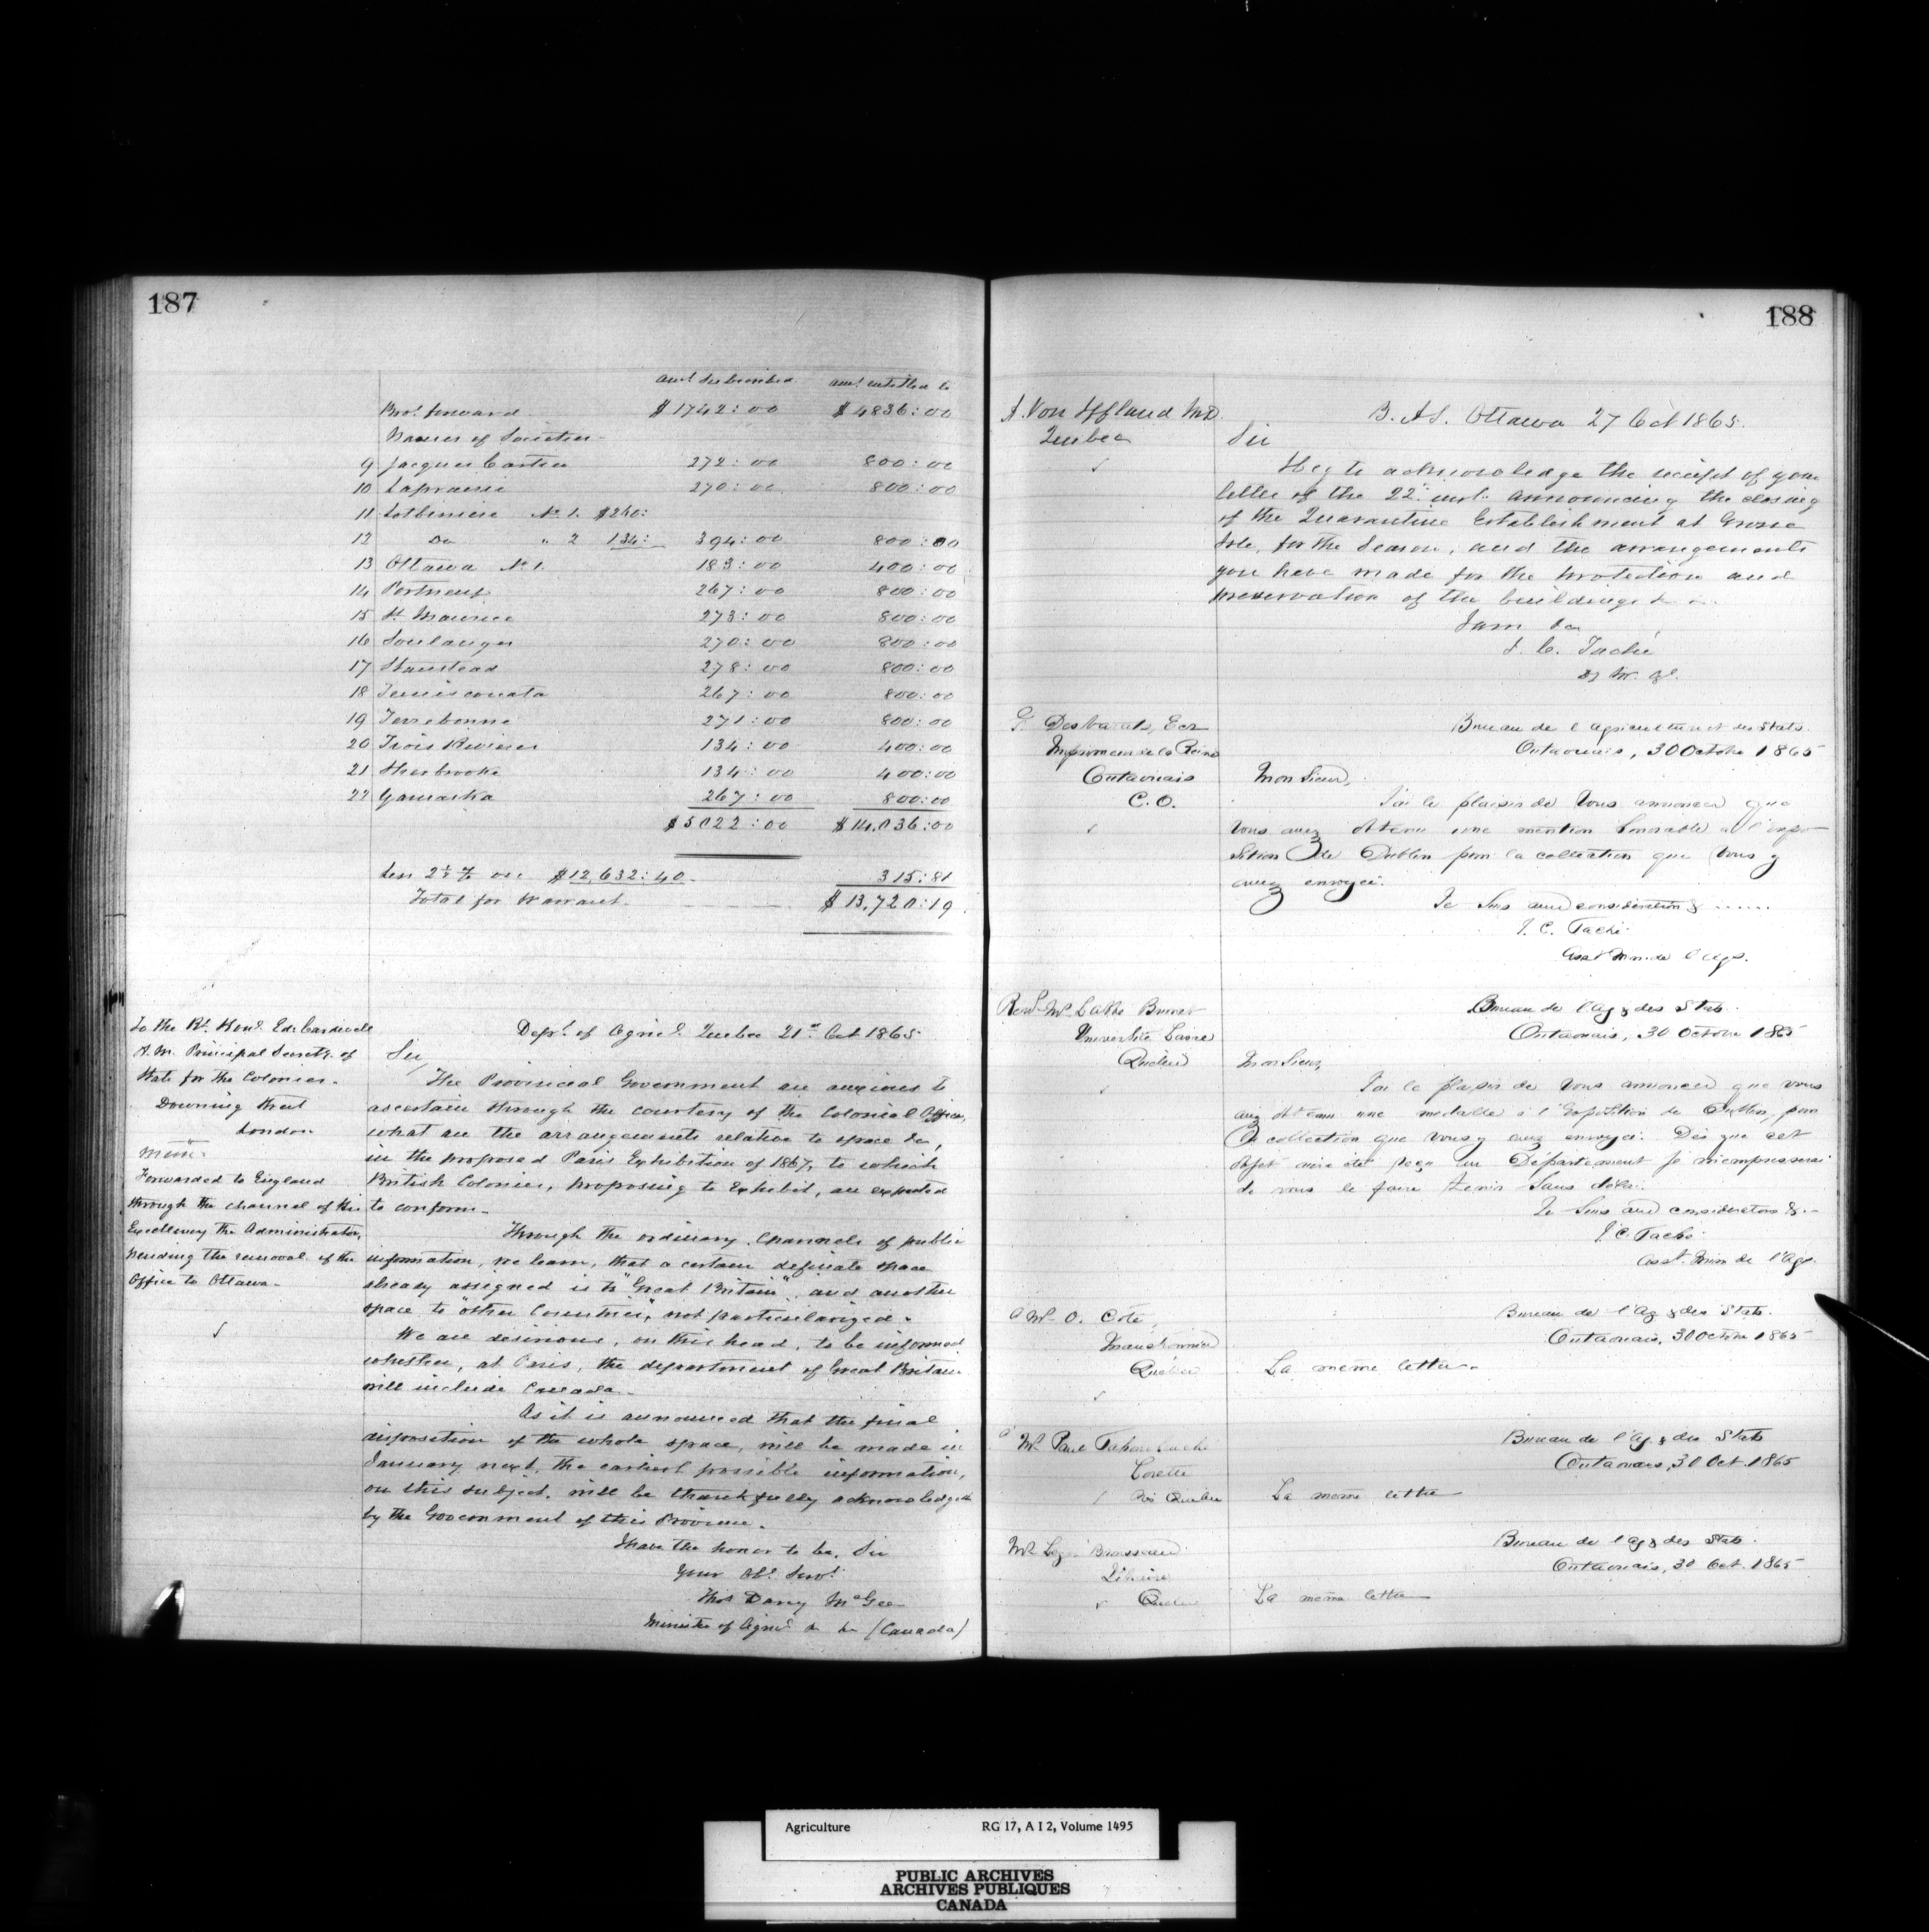 187
amt. Subscribed amt. entitled to
Brot. forward $1742:00 $4836:00
Names of Societies
9 Jacques Cartier 272:00 800:00
10 Laprairie 270:00 800:00
11 Lotbiniere No 1. $260:
12 Do " 2 134: 394:00 800:00
13 Ottawa No 1. 183:00 400:00
14 Portneuf 267:00 800:00
15 St. Maurice 273:00 800:00
16 Soulanges 270:00 800:00
17 Stanstead 278:00 800:00
18 Temisconata 267:00 800:00
19 Terrebonne 271:00 800:00
20 Trois Rivieres 134:00 400:00
21 Sherbrooke 134:00 400:00
22 Yamaska 267:00 800:00
$5022:00 $14.036:00
Less 2½ % on $12,632:40 315:81
Total for Warrant $13,720:19
To the Rt. Honl. Ed. Cardwell
H.M. Principal Secrety. of
State for the Colonies.
Downing Street
London
Mem:
Forwarded to England
through the channel of His
Excellency the Administrator,
pending the removal of the
Office to Ottawa.
Dept. of Agricl. Quebec 21st Oct 1865
Sir,
The Provincial Government are anxious to
ascertain through the courtesy of the Colonial Office,
what are the arrangements relative to space &c,
in the proposed Paris Exhibition of 1867, to which
British Colonies, proposing to Exhibit, are expected
to conform.
Through the ordinary channels of public
information, we learn, that a certain definite space
already assigned is to "Great Britain", and another
space to "other Countries," not particularized.
We are desirous, on this head, to be informed
whether, at Paris, the department of Great Britain
will include Canada.
As it is announced that the final
disposition of the whole space, will be made in
January next, the earliest possible information,
on this subject, will be thankfully acknowledged
by the Government of this Province.
I have the honor to be, Sir
Your Obt. Servt.
Thos. Darcy McGee
Minister of Agricl. &c &c (Canada)
188
A. Von Iffland MD.
Quebec
B. AS. Ottawa 27 Oct 1865.
Sir
I beg to acknowledge the receipt of your
letter of the 22. inst. announcing the closing
of the Quarantine Establishment at Grosse
Isle, for the Season, and the arrangements
you have made for the protection and
preservation of the buildings &c.
I am &c
J. C. Taché
Dy M. A.
G. Desbarats, Ecr
Imprimeur de la Reine
Outaouais
C.O.
Bureau de l'agriculture et des Stats.
Outaouais, 30 Octobre 1865
Monsieur,
J'ai le plaisir de Vous annoncer que
Vous avez obtenu une mention honorable a l'expo
sition de Dublin pour la collection que Vous y
avez envoyée.
Je Suis avec consideration & ......
J. C. Taché
Asst Min de l'Agr.
Revd. Mr. L'abbe Brunet
Université Laval
Québec
Bureau de l'Ag & des Stats.
Outaouais, 30 Octobre 1865
Monsieur,
J'ai le plaisir de Vous annoncer que vous
avez obtenu une medaille à l'Exposition de Dublin, pour
la collection que Vous y avez envoyée. Dès que cet
objet aura été reçu au Département je m'empresserai
de vous le faire tenir Sans délai.
Je Suis avec consideration &.
J. C. Taché
Asst. Min de l'Agr.
Mr. O. Coté,
Québec
Bureau de l'Ag & des Stats.
Outaouais, 30 Octobre 1865
La même lettre.
Mr. Paul
Lorette
Près Québec
Bureau de l'Ag & des Stats
Outaouais, 30 Oct. 1865
La même lettre
Mr. Brousseau
Libraire
Québec
Bureau de l'Ag & des Stats.
Outaouais, 30 Oct. 1865
La même lettre
Agriculture RG 17, A I 2, Volume 1495
PUBLIC ARCHIVES
ARCHIVES PUBLIQUES
CANADA